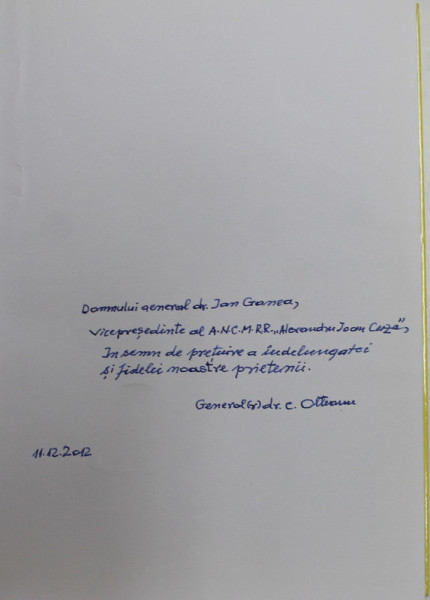 Domnului general dr. Jan Ganea,
Vicepreședinte al A.N.C.M.R.R. „Alexandru Ioan Cuza”,
In semn de prețuire a îndelungatei
și fidelei noastre prietenii.
General(r) dr. C. Olteanu
11.12.2012